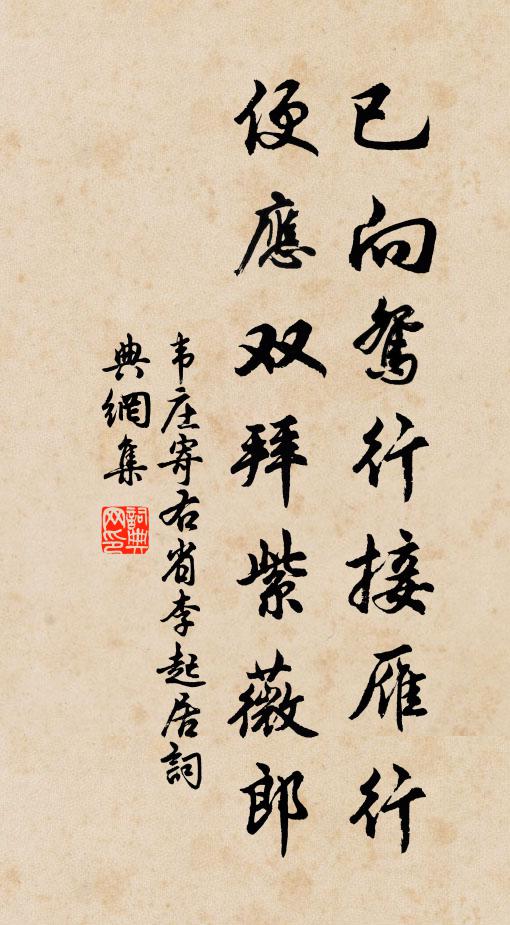 已向鸳行接雁行
便應双拜紫薇郎
韦庄寄右省李起居詞
典網集
詞典网印